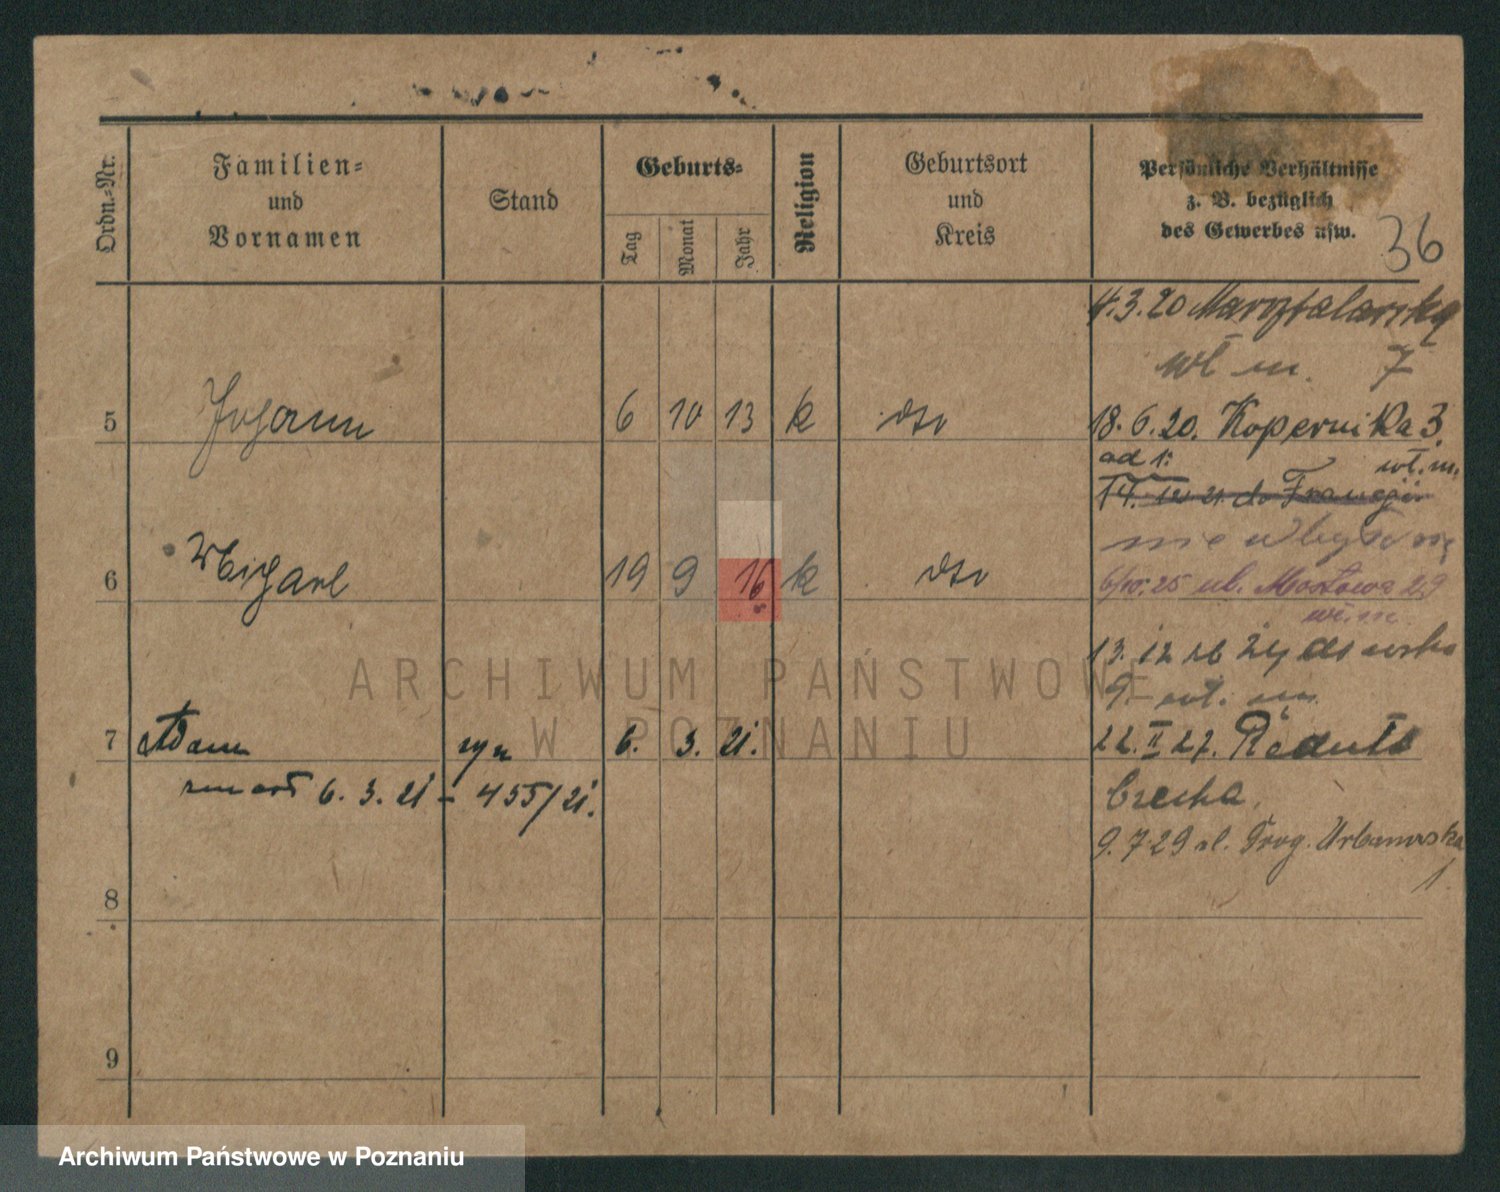 Ordn.-Nr.
Familien-
und
Vornamen
Stand
Geburts-
Tag
Monat
Jahr
Religion
Geburtsort
und
Kreis
Persönliche Verhältnisse
z. B. bezüglich
des Gewerbes usw.
36
4.3.20
wł m. 7
5 Johann 6 10 13 k dto
18.6.20. Kopernika 3.
ad 1: wł. m.
14. 12. 21. do Francji
nie wbyło się
6 19 9 16 k dto
ul. Mostowa 29
wł. m.
13. 12 26 Żydowska
9 wł. m.
7 Adam syn 6. 3. 21.
22. II 27. Reduta
zmarł 6. 3. 21 – 455/21.
9.7.29 ul. Urbanowska
1.
8
9
ARCHIWUM PAŃSTWOWE
W POZNANIU
Archiwum Państwowe w Poznaniu